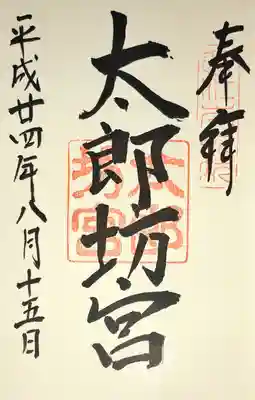 奉拝
太郎坊宮
平成廿四年八月十五日